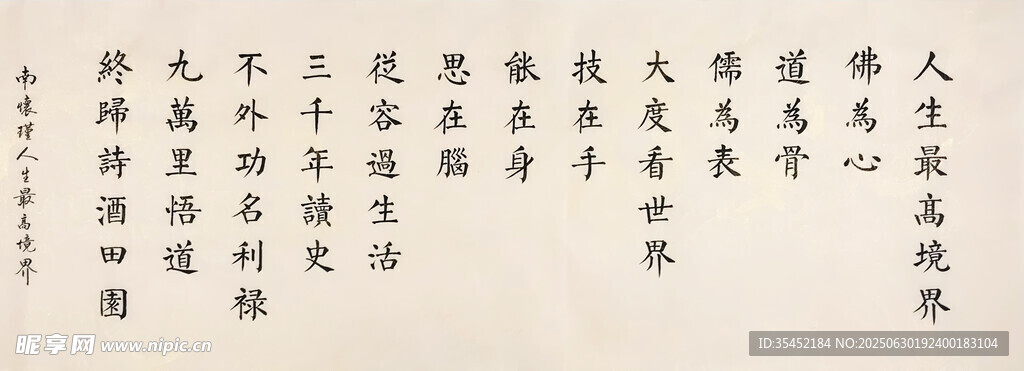 人生最高境界
佛為心
道為骨
儒為表
大度看世界
技在手
能在身
思在腦
從容過生活
三千年讀史
不外功名利祿
九萬里悟道
終歸詩酒田園
南懷瑾人生最高境界
昵享网 www.nipic.cn
ID:35452184 NO:20250630192400183104